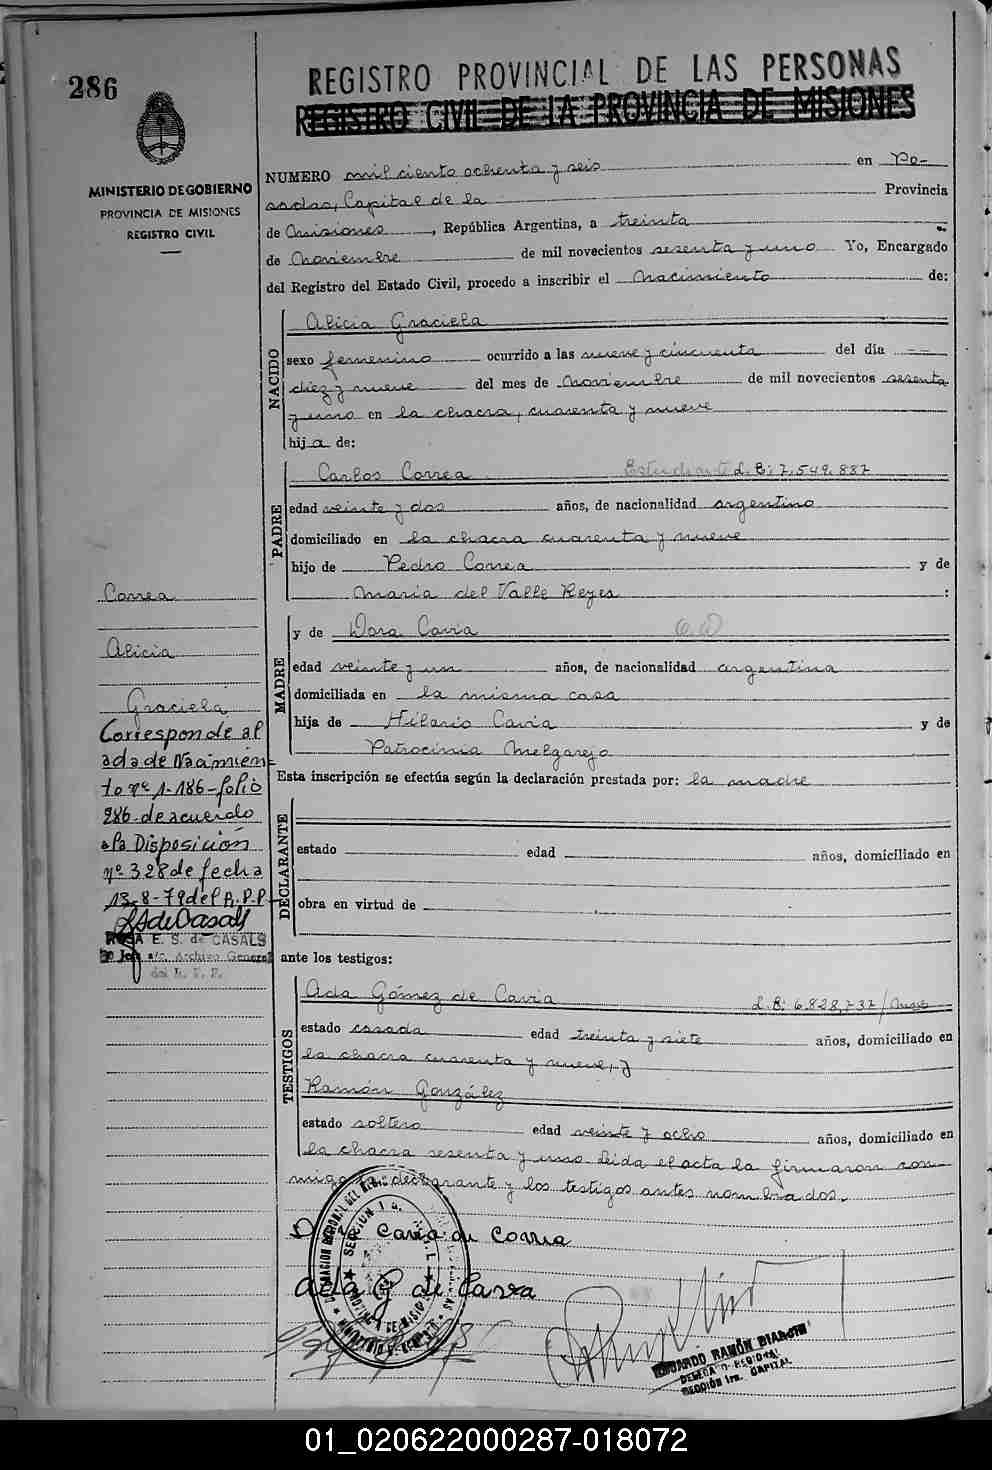 286
MINISTERIO DE GOBIERNO
PROVINCIA DE MISIONES
REGISTRO CIVIL
REGISTRO PROVINCIAL DE LAS PERSONAS
REGISTRO CIVIL DE LA PROVINCIA DE MISIONES
NUMERO mil ciento ochenta y seis en Po-
sadas, Capital de la Provincia
de Misiones, República Argentina, a treinta
de Noviembre de mil novecientos sesenta y uno Yo, Encargado
del Registro del Estado Civil, procedo a inscribir el Nacimiento de:
NACIDO
Alicia Graciela
sexo femenino ocurrido a las nueve y cincuenta del día
diez y nueve del mes de Noviembre de mil novecientos sesenta
y uno en la chacra, cuarenta y nueve
hija de:
PADRE
Carlos Correa Estudiante L.E: 7.549.887
edad veinte y dos años, de nacionalidad argentino
domiciliado en la chacra cuarenta y nueve
hijo de Pedro Correa y de
María del Valle Reyes :
MADRE
y de Dora Cavia
edad veinte y un años, de nacionalidad argentina
domiciliada en la misma casa
hija de Hilario Cavia y de
Patrocinia Melgarejo
Esta inscripción se efectúa según la declaración prestada por: la madre
DECLARANTE
estado edad años, domiciliado en
obra en virtud de
ante los testigos:
TESTIGOS
Ada Gómez de Cavia
estado casada edad treinta y siete años, domiciliado en
la chacra cuarenta y nueve, y
Ramón González
estado soltero edad veinte y ocho años, domiciliado en
la chacra sesenta y uno leida el acta la firmaron con-
migo declarante y los testigos antes nombrados.
Cavia de Correa
Ada G de Cavia
EDUARDO RAMÓN BIANCHI
DELEGADO REGIONAL
SECCIÓN 1ra. CAPITAL
Correa
Alicia
Graciela
Corresponde al
acta de Nacimien
to nº 1-186-folio
286 de acuerdo
a la Disposición
nº 328 de fecha
13-8-79 del R.P.P
LSdeCasals
ROSA E. S. de CASALS
Jefe a/c. Archivo General
del R. P. P.
01_020622000287-018072